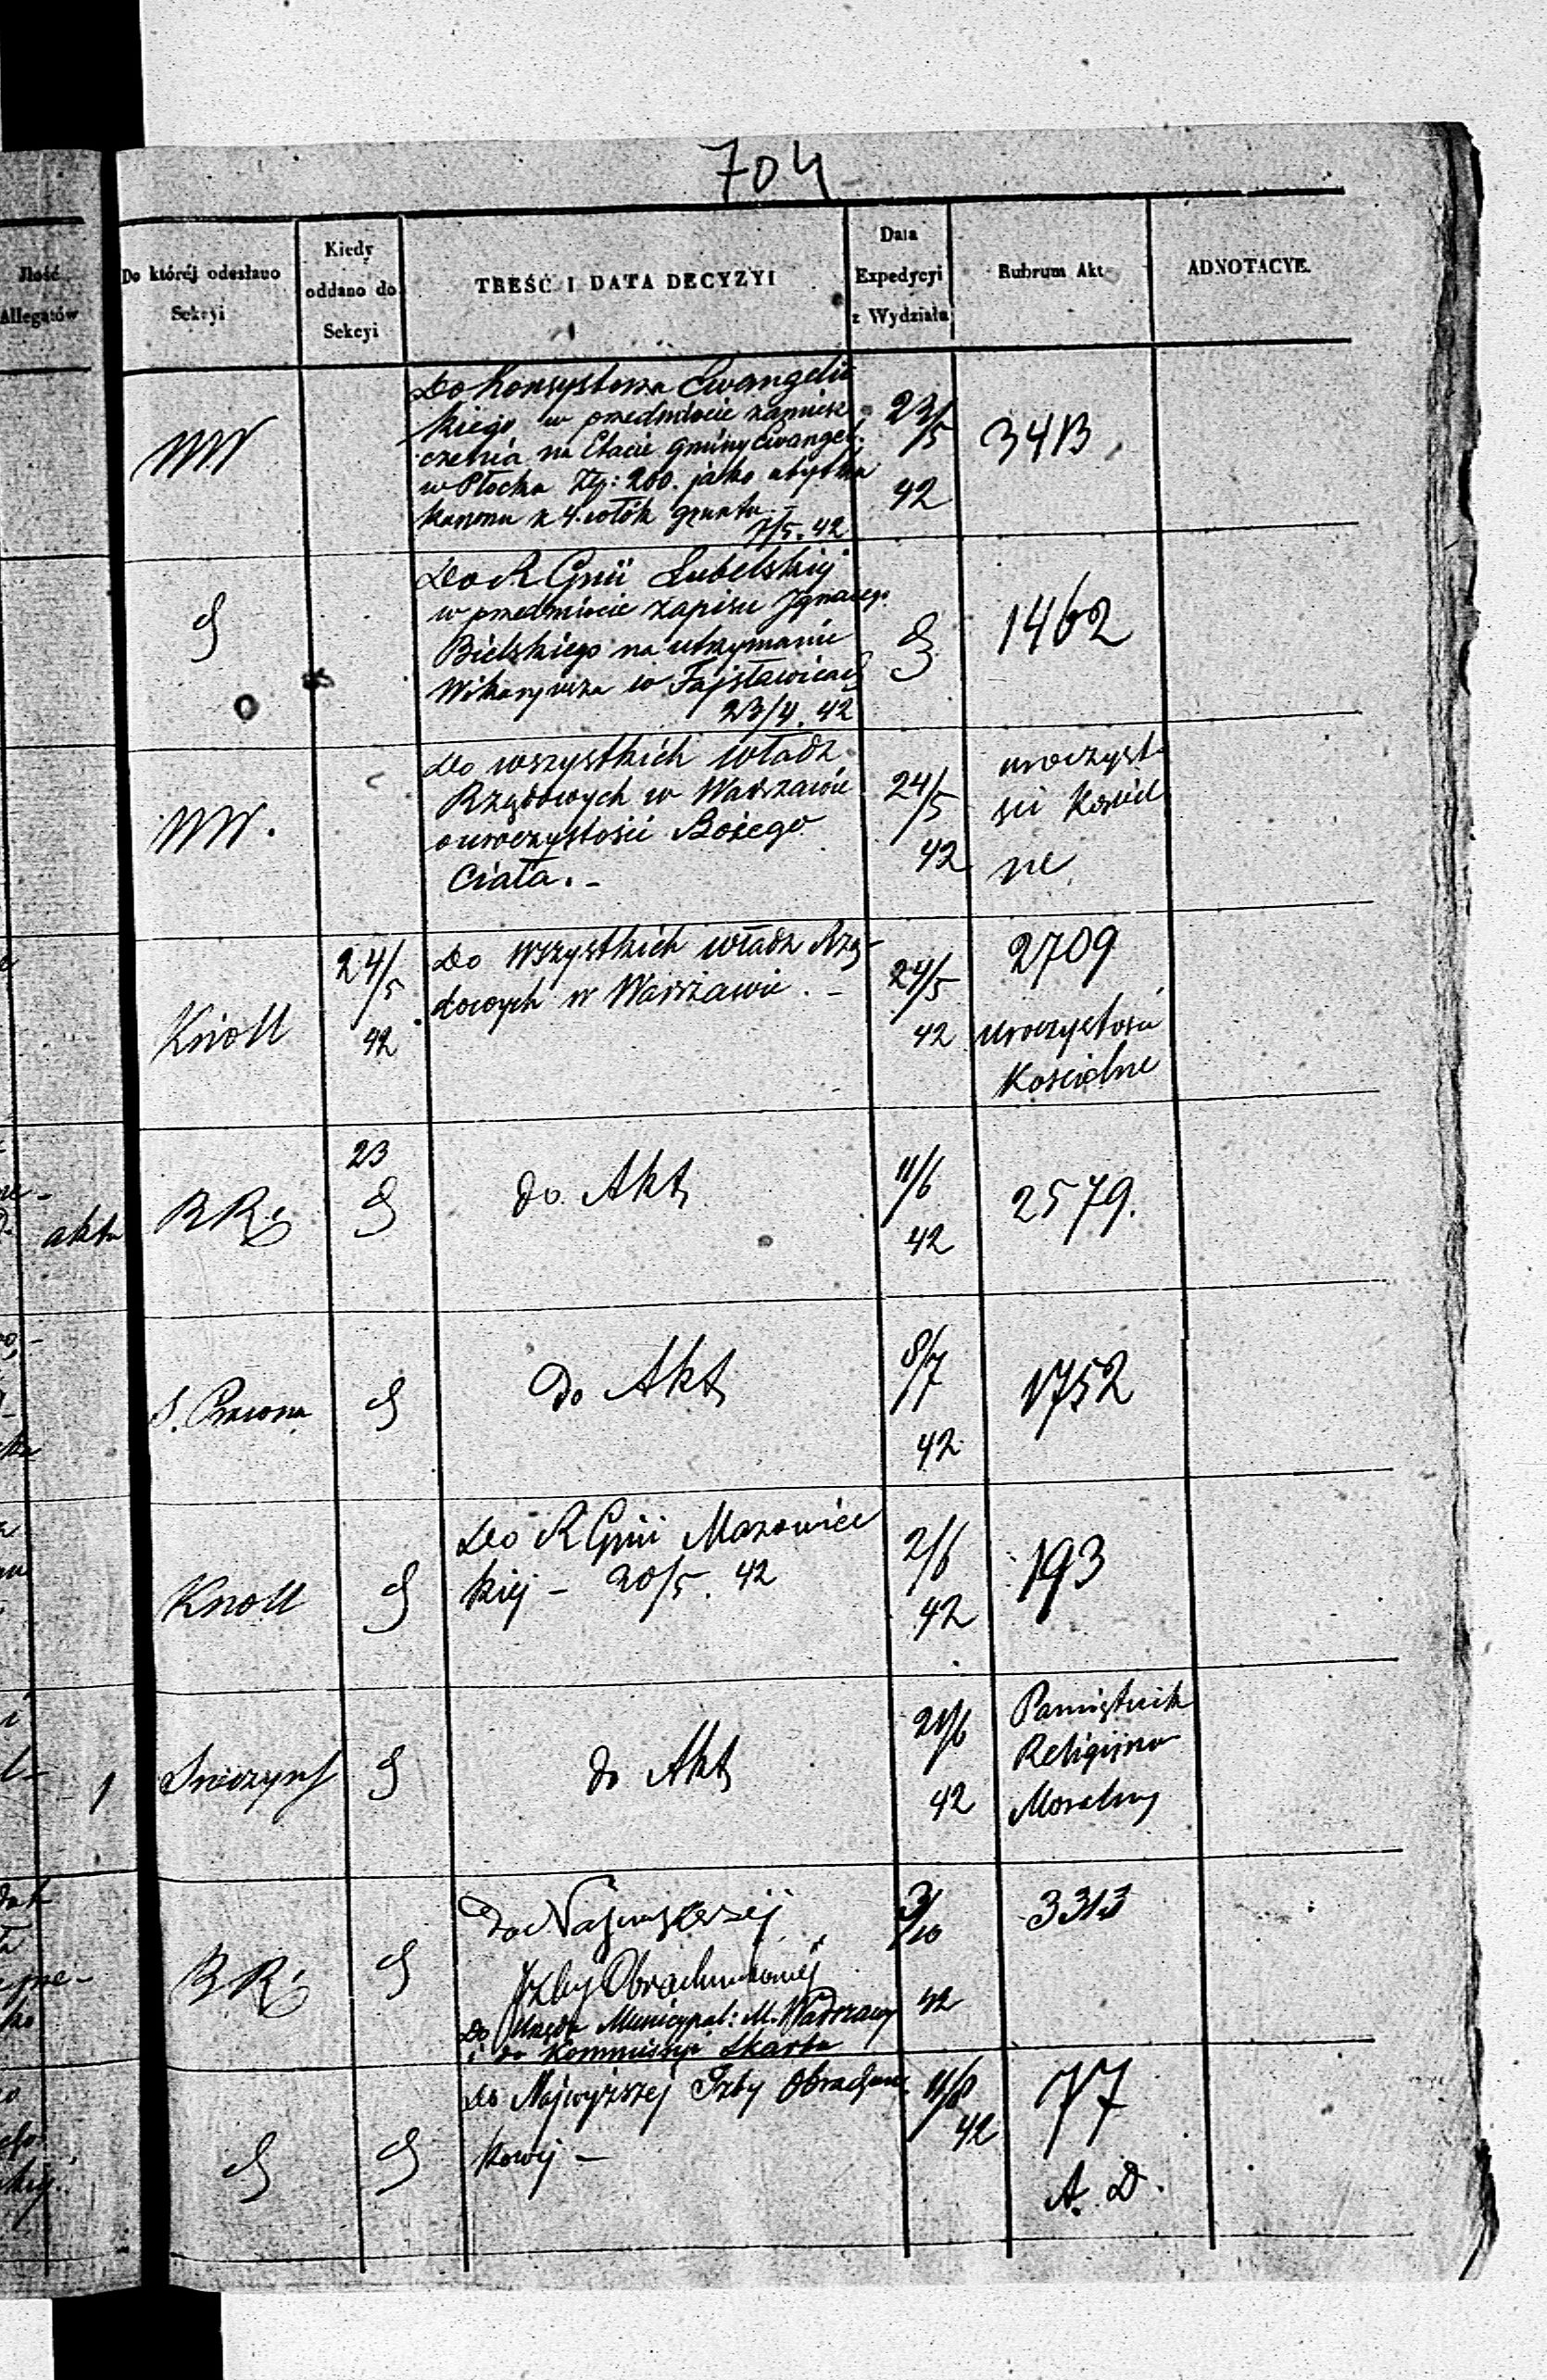 704
Ilość
Allegatów
Do której odesłano
Sekcyi
Kiedy
oddano do
Sekcyi
TREŚĆ I DATA DECYZYI
Data
Expedycyi
z Wydziału
Rubrum Akt
ADNOTACYE.
Do Konsystorza Ewangelic
kiego w przedmiocie zamiesz
czenia na Etacie gminy Ewangel.
w Płocku Złp: 200. jako
Kanonu z 4. włók gruntu.
7/5. 42
23/5
42
3413
Do R Gnii Lubelskiej
w przedmiocie zapisu Ignacego
Bielskiego na utrzymanie
Wikaryusza w Fajsławicach
23/4. 42
1462
do wszystkich władz
Rządowych w Warszawie
o uroczystości Bożego
Ciała. -
24/5
42
uroczysto
ści Kościel
ne
Knoll
24/5
42
Do wszystkich władz Rzą-
dowych w Warszawie. -
24/5
42
2709
Uroczystości
Kościelne
akta
RR:
23
do Akt
11/6
42
2579.
do Akt
8/7
42
1752
Knoll
Do R Gnii Mazowiec
kiej - 20/5. 42
2/6
42
193
1
do Akt
21/6
42
Pamiętnik
Religijno
Moralny
RR:
do Najwyższej
Izby Obrachunkowej
Do Urzędu Municypal: M. Warszawy
i do Kommissyi Skarbu
3/10
42
3313
do Najwyższej Izby Obrachun
kowej -
11/8
42
77
A. D.